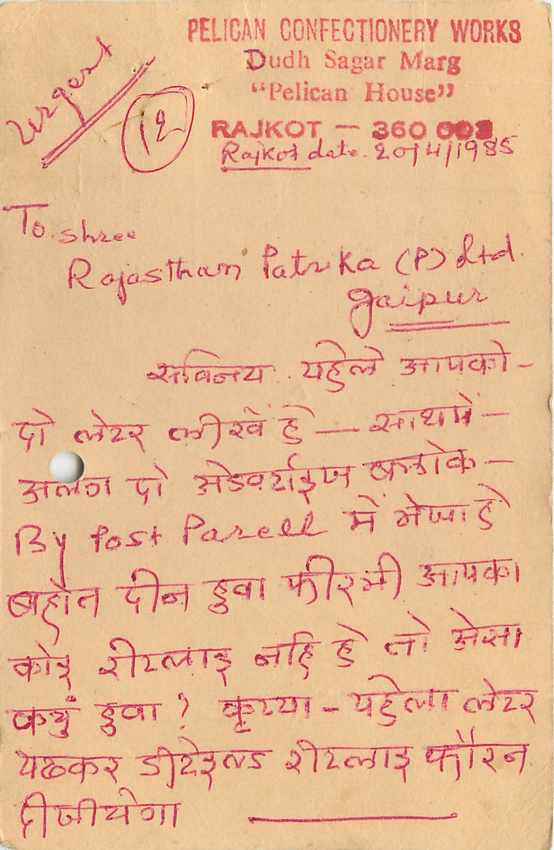 PELICAN CONFECTIONERY WORKS
Dudh Sagar Marg
"Pelican House"
RAJKOT – 360 003
Urgent
12
Rajkot date. 20/4/1985
To. Shree
Rajasthan Patrika (P) Ltd.
Jaipur
सविनय. पहेले आपको -
दो लेटर लीखें है — साथमें -
अलग दो अेडवर्टाइज ब्लोक -
By Post Parcell में भेजा है
बहोत दीन हुवा फीरभी आपका
कोइ रीप्लाइ नहि है तो अेसा
क्युं हुवा ? कृप्या - पहेला लेटर
पढकर डीटेइल्ड रीप्लाइ फौरन
दीजीयेगा ———